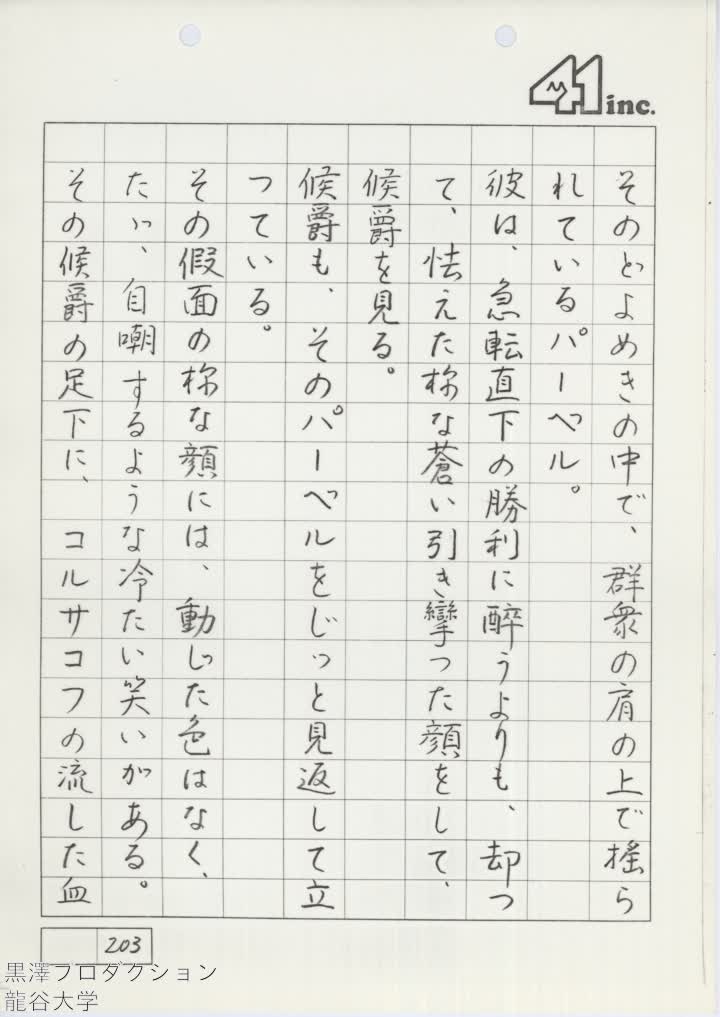 41 inc.
そのどよめきの中で、群衆の肩の上で揺ら
れているパーベル。
彼は、急転直下の勝利に酔うよりも、却つ
て、怯えた様な蒼い引き攣つた顔をして、
候爵を見る。
候爵も、そのパーベルをじっと見返して立
つている。
その假面の様な顔には、動じた色はなく、
たゞ、自嘲するような冷たい笑いがある。
その候爵の足下に、コルサコフの流した血
203
黒澤プロダクション
龍谷大学